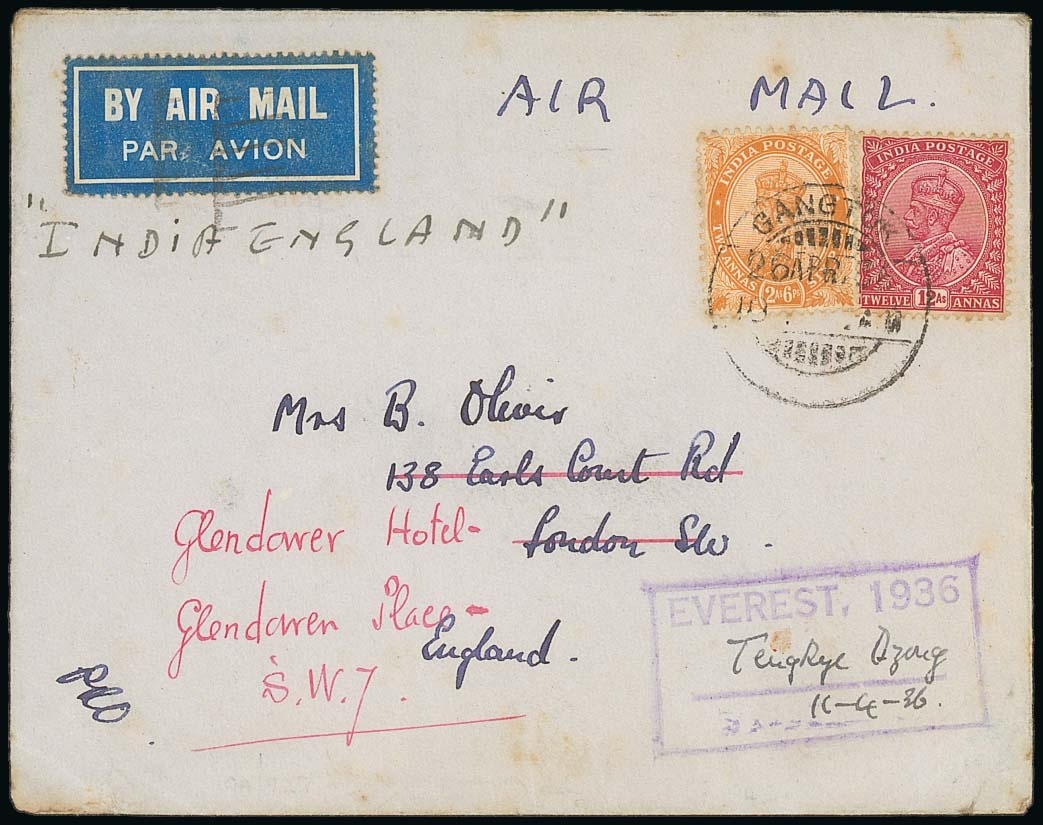 BY AIR MAIL
PAR AVION
AIR MAIL.
"INDIA ENGLAND"
INDIA POSTAGE
TWO ANNAS
2As6Ps
INDIA POSTAGE
TWELVE 12As ANNAS
GANGTOK
26 APR
Mrs B. Olivir
138 Earls Court Rd
Glendower Hotel-
London SW.
Glendower Place-
England.
S.W.7.
EVEREST, 1936
Tengkye Dzong
11-4-36.